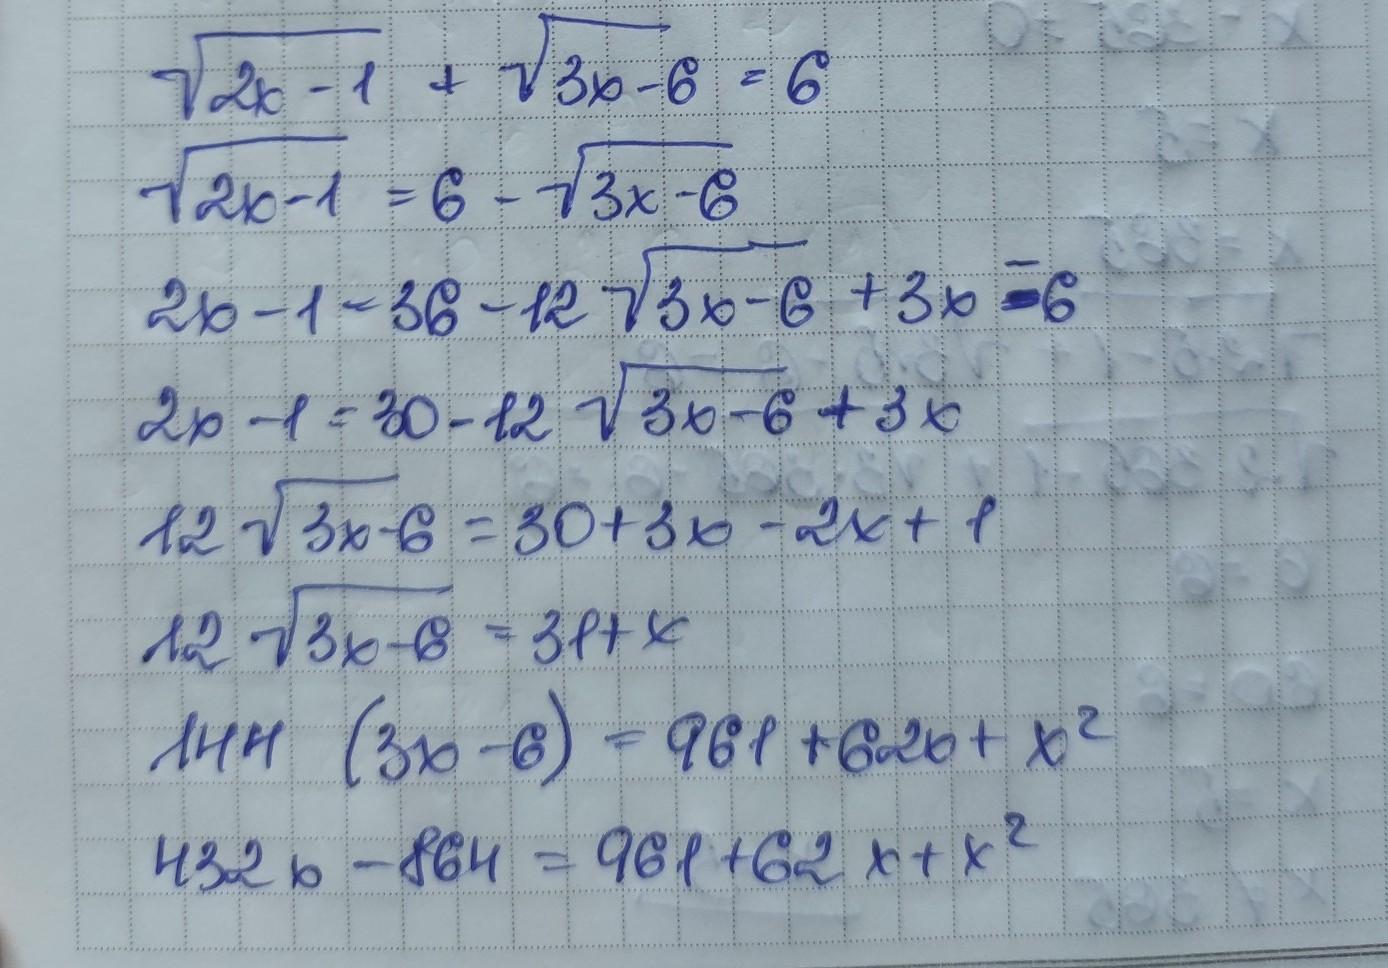 √(2x-1) + √(3x-6) = 6
√(2x-1) = 6 - √(3x-6)
2x - 1 = 36 - 12 √(3x-6) + 3x - 6
2x - 1 = 30 - 12 √(3x-6) + 3x
12 √(3x-6) = 30 + 3x - 2x + 1
12 √(3x-6) = 31 + x
144 (3x - 6) = 961 + 62x + x²
432x - 864 = 961 + 62x + x²